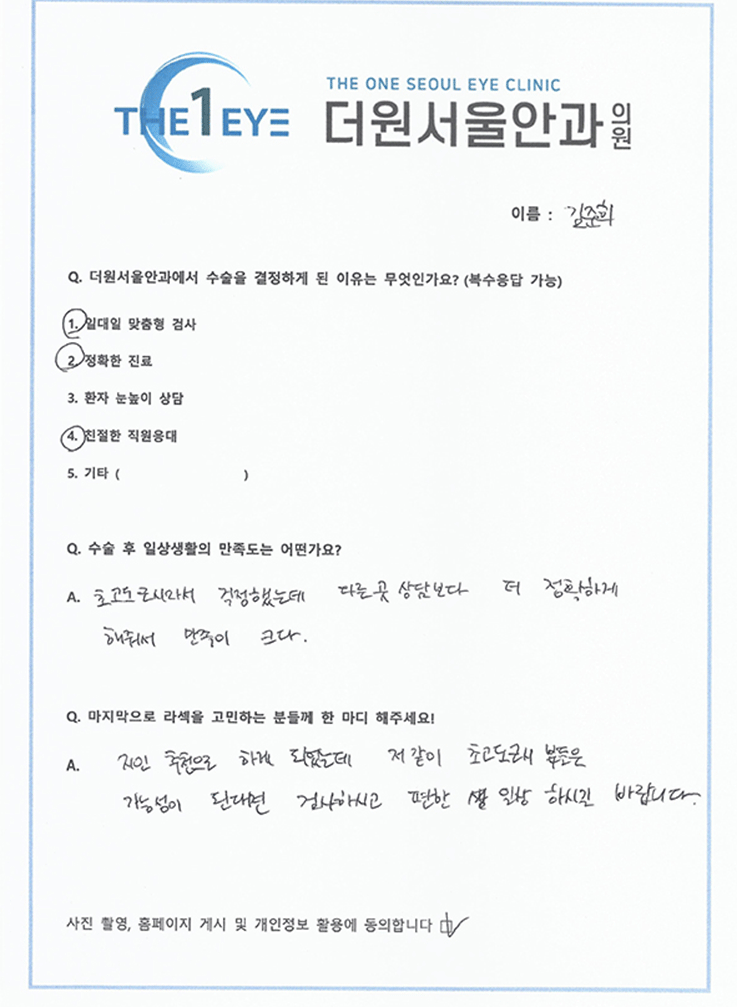 THE 1 EYE
THE ONE SEOUL EYE CLINIC
더원서울안과의원
이름 : 김준희
Q. 더원서울안과에서 수술을 결정하게 된 이유는 무엇인가요? (복수응답 가능)
1. 일대일 맞춤형 검사
2. 정확한 진료
3. 환자 눈높이 상담
4. 친절한 직원응대
5. 기타 ( )
Q. 수술 후 일상생활의 만족도는 어떤가요?
A. 초고도근시라서 걱정했는데 다른곳 상담보다 더 정확하게
해줘서 만족이 크다.
Q. 마지막으로 라섹을 고민하는 분들께 한 마디 해주세요!
A. 지인 추천으로 하게 되었는데 저같이 초고도근시 분들은
가능성이 된다면 검사하시고 편한 일상 하시길 바랍니다.
사진 촬영, 홈페이지 게시 및 개인정보 활용에 동의합니다